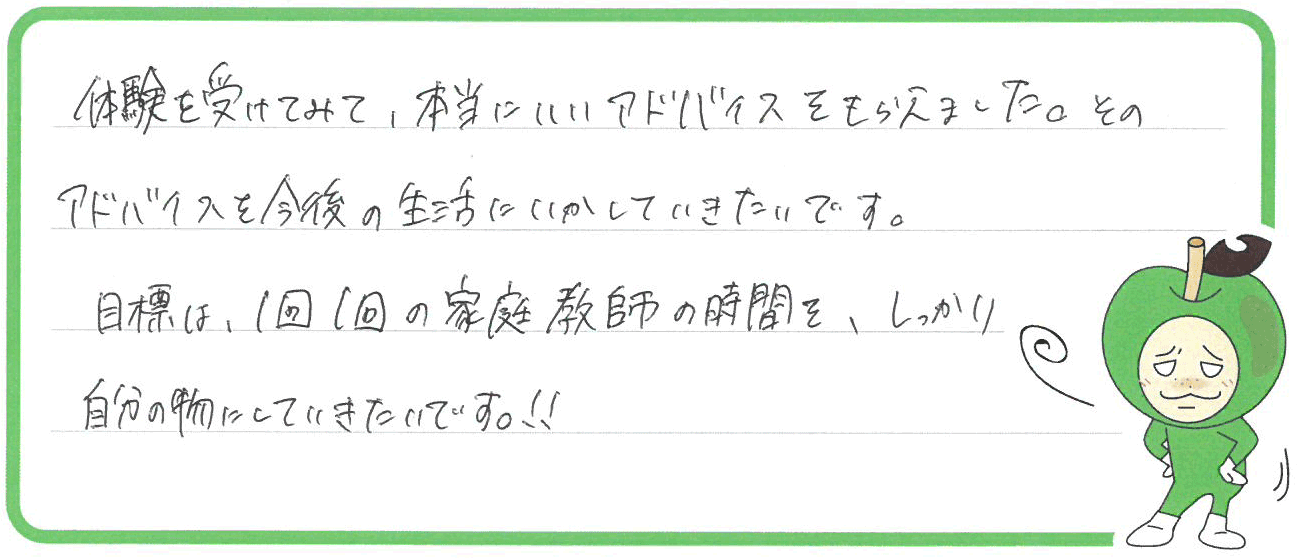 体験を受けてみて、本当にいいアドバイスをもらえました。その
アドバイスを今後の生活にいかしていきたいです。
目標は、1回1回の家庭教師の時間を、しっかり
自分の物にしていきたいです。!!